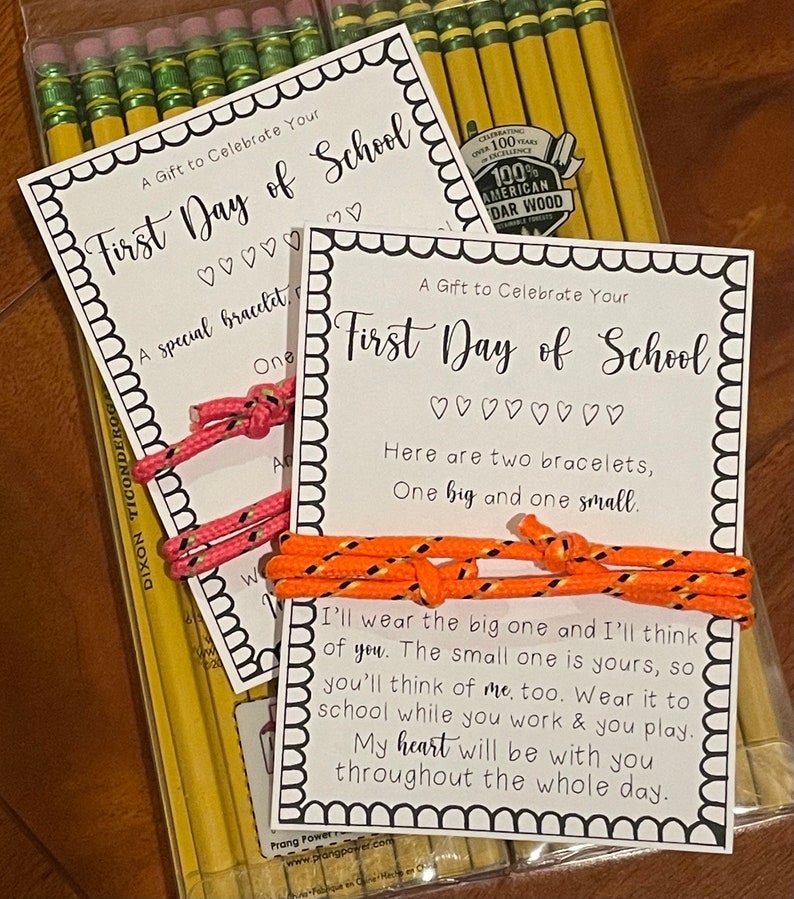 A Gift to Celebrate Your
First Day of School
A special bracelet,
One
CELEBRATING
OVER 100 YEARS
of EXCELLENCE
100%
AMERICAN
DAR WOOD
A Gift to Celebrate Your
First Day of School
Here are two bracelets,
One big and one small.
I'll wear the big one and I'll think
of you. The small one is yours, so
you'll think of me, too. Wear it to
school while you work & you play.
My heart will be with you
throughout the whole day.
DIXON TICONDEROGA
Prang Power
www.prangpower.com
Fabrique en Chine • Hecho en